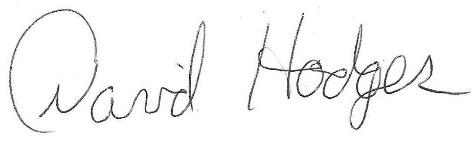 David Hodges